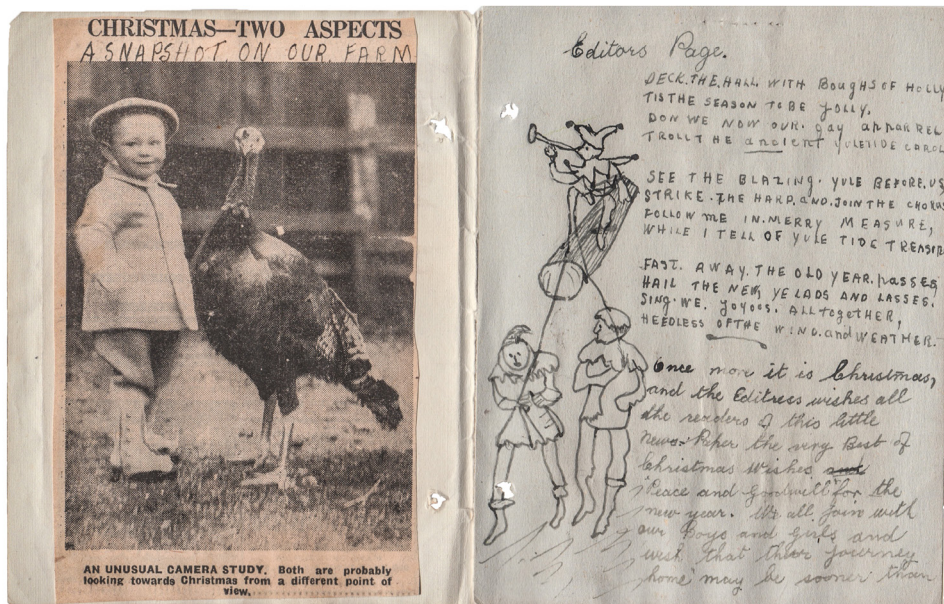 CHRISTMAS—TWO ASPECTS
A SNAPSHOT. ON OUR. FARM
AN UNUSUAL CAMERA STUDY. Both are probably
looking towards Christmas from a different point of
view.
Editors Page.
DECK.THE.HALL. WITH BOUGHS OF HOLLY
TIS THE SEASON TO BE JOLLY.
DON WE NOW OUR. gay APPARREL
TROLL THE ancient YULETIDE CAROL
SEE THE BLAZING. YULE BEFORE.US
STRIKE.THE HARP.AND.JOIN THE CHORUS
FOLLOW ME IN.MERRY MEASURE,
WHILE I TELL OF YULE TIDE TREASUR
FAST. AWAY.THE OLD YEAR.PASSES
HAIL THE NEW, YE LADS AND LASSES.
SING.WE. JOYOUS. ALL TOGETHER,
HEEDLESS OF THE WIND.and WEATHER.
Once more it is Christmas,
and the Editress wishes all
the readers of this little
news-Paper the very Best of
Christmas Wishes
"Peace and Goodwill" for the
new year. We all join with
our Boys and Girls and
wish that their journey
home may be sooner than